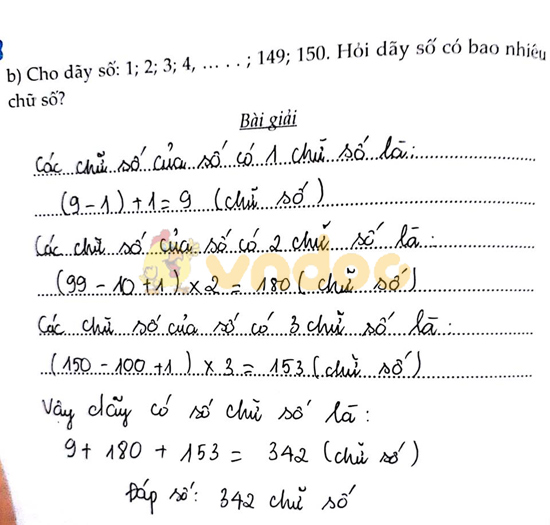 b) Cho dãy số: 1; 2; 3; 4, ... . . ; 149; 150. Hỏi dãy số có bao nhiêu
chữ số?
Bài giải
Các chữ số của số có 1 chữ số là:
(9-1)+1=9 (chữ số)
Các chữ số của số có 2 chữ số là:
vndoc
(99 - 10 +1) x 2 = 180 (chữ số)
Các chữ số của số có 3 chữ số là:
(150 - 100 +1) x 3 = 153 (chữ số)
Vậy dãy có số chữ số là:
9+ 180 + 153 = 342 (chữ số)
Đáp số: 342 chữ số